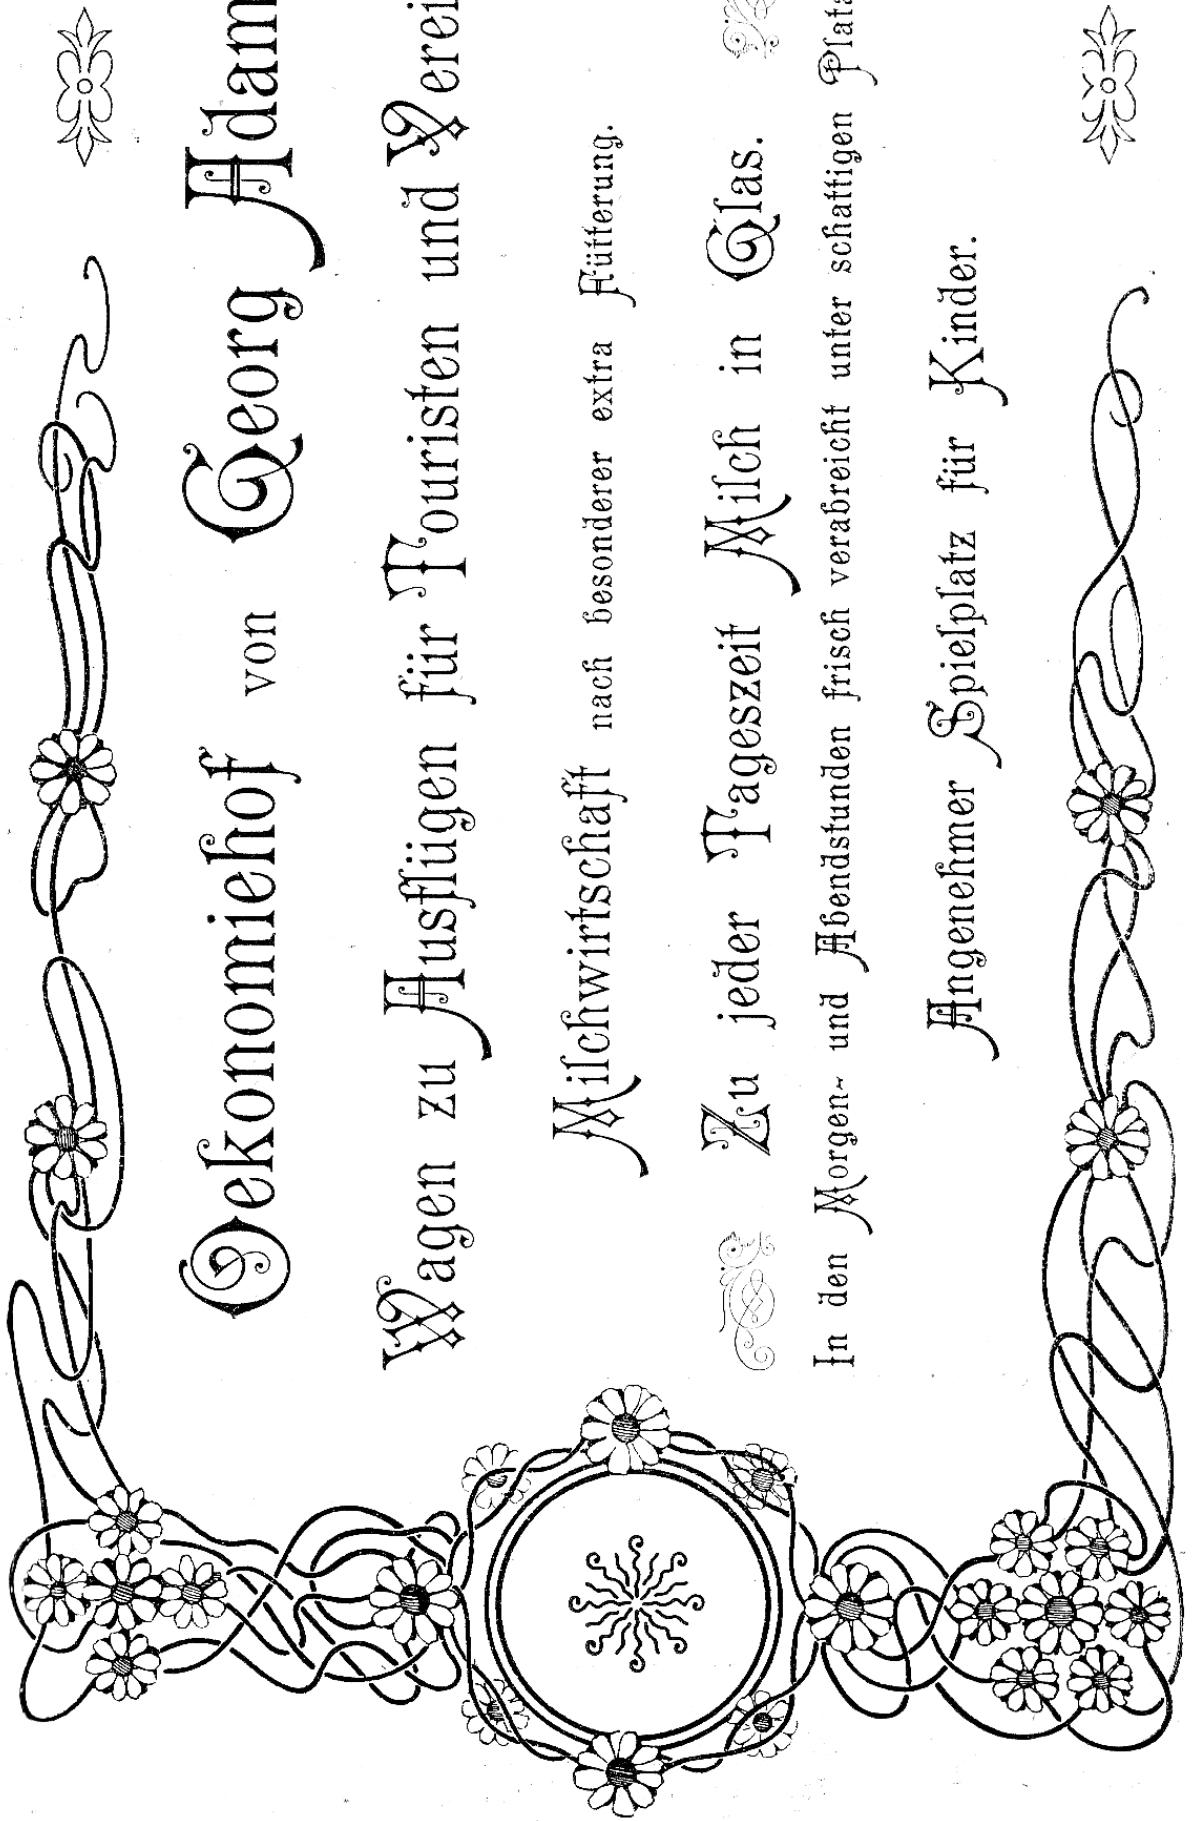 Oekonomiehof von Georg Adam
Wagen zu Ausflügen für Touristen und Verei
Milchwirtschaft nach besonderer extra Fütterung.
Zu jeder Tageszeit Milch in Glas.
In den Morgen- und Abendstunden frisch verabreicht unter schattigen Plata
Angenehmer Spielplatz für Kinder.